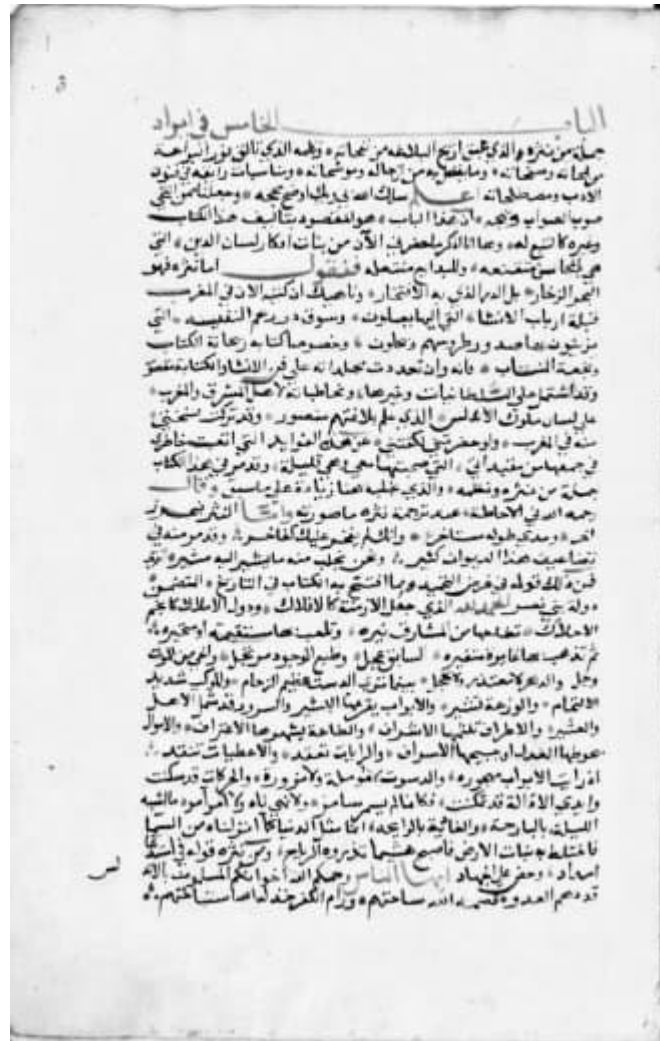 الباب الخامس في ايراد
جملة من نثره والذي عبق اريج البلاغة من نفحاته ونظمه الذي تالق نور البراعة
من لمحاته وصفحاته وما يتصل به من ازجاله وموشحاته ومناسبات رائقة في فنون
الادب ومصطلحاته اعلم سلك الله بي وبك اوضح محجه وجعلنا ممن انتحى
صوب الصواب ونهجه ان هذا الباب هو المقصود بتاليف هذا الكتاب
وغيره كالتبع له وها انا اذكر ما حضرني الآن من بنات افكار لسان الدين التي
هي بالمحاسن متقنعه وللبدايع منتعله فنقول اما نثره فهو
البحر الزخار بل الدر الذي به الافتخار وناهيك ان كتبه الان في المغرب
قبلة ارباب الانشا التي اليها يصلون وسوق درهم النفيسه التي
يزينون بها صدور طروسهم ويحلون وخصوصا كتابه ريحانة الكتاب
ونجعة المنتاب فانه وان تعددت مجلداته على فن الانشا والكتابة مقصور
وقد اشتمل على السلطانيات وغيرها ومخاطباته لاهل المشرق والمغرب
على لسان ملوك الاندلس الذي علم بلاغتهم منصور وقد تركت نسختي
منه في المغرب ولو حضرتني لكفتني عن هذه الفوايد التي اتعبت خاطري
في جمعها من مقيداتي التي صحبتها معي وهي قليلة وقد مر في هذا الكتاب
جملة من نثره ونظمه والذي نجلبه هنا زيادة على ما سبق وقال
رحمه الله في الاحاطة عند ترجمة نثره ما صورته واما النثر فبحر زاخر
ومدى طوله مستاخر وانك لم يفخر عليك كفاخر وقد مر منه في
تضاعيف هذا الديوان كثير ونحن نجلب منه ما يشير اليه مشير
فمن ذلك قوله في غرض التحميد مما افتتح به الكتاب في التاريخ المتضمن
دولة بني نصر الحمد لله الذي جعل الازمنة كالافلاك ودول الاملاك كانجم
الاحلاك تطلعها من المشارق نيره وتلعب بها مستقيمة او متحيره
ثم تذهب بها غايرة متغيره السابق عجل وطبع الوجود مرتجل والحي من الموت
وجل والدهر لا معتذر ولا خجل بينما ترى الدست عظيم الزحام والموكب شديد
الالتحام والوزعة تشير والابواب يقرعها البشير والسرور قد شمل الاهل
والعشير والاطراف تلثمها الاشراف والطاعة يشهرها الاعتراف والاموال
يحوطها العدل او يبيحها الاسراف والرايات تعقد والاعطيات تنقد
اذ رايت الابواب مهجوره والدسوت لا مؤملة ولا مزورة والحركات قد سكنت
وايدي الادالة قد تمكنت فكانما لم يسمر سامر ولا نهى ناه ولا امر آمر ما اشبه
الليلة بالبارحة والغادية بالرايحة انما مثل الدنيا كماء انزلناه من السما
فاختلط به نبات الارض فاصبح هشيما تذروه الرياح ومن نثره قوله في استدعا
امداد وحض على الجهاد ايها الناس رحمكم الله اخوانكم المسلمون بالاندلس
قد دهم العدو قصمه الله ساحتهم ورام الكفر خذله الله استباحتهم